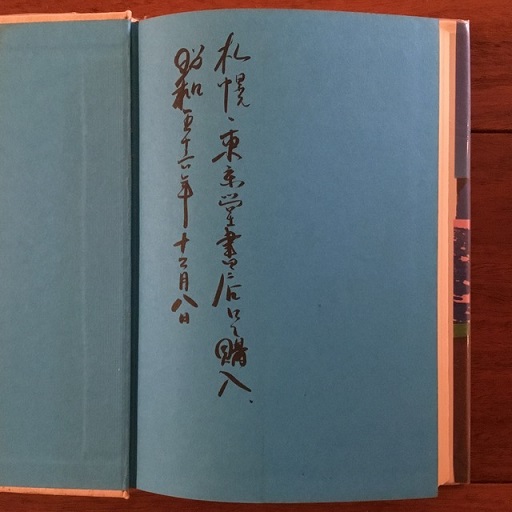 札幌、東京堂書店にて購入、
昭和五十六年十二月八日